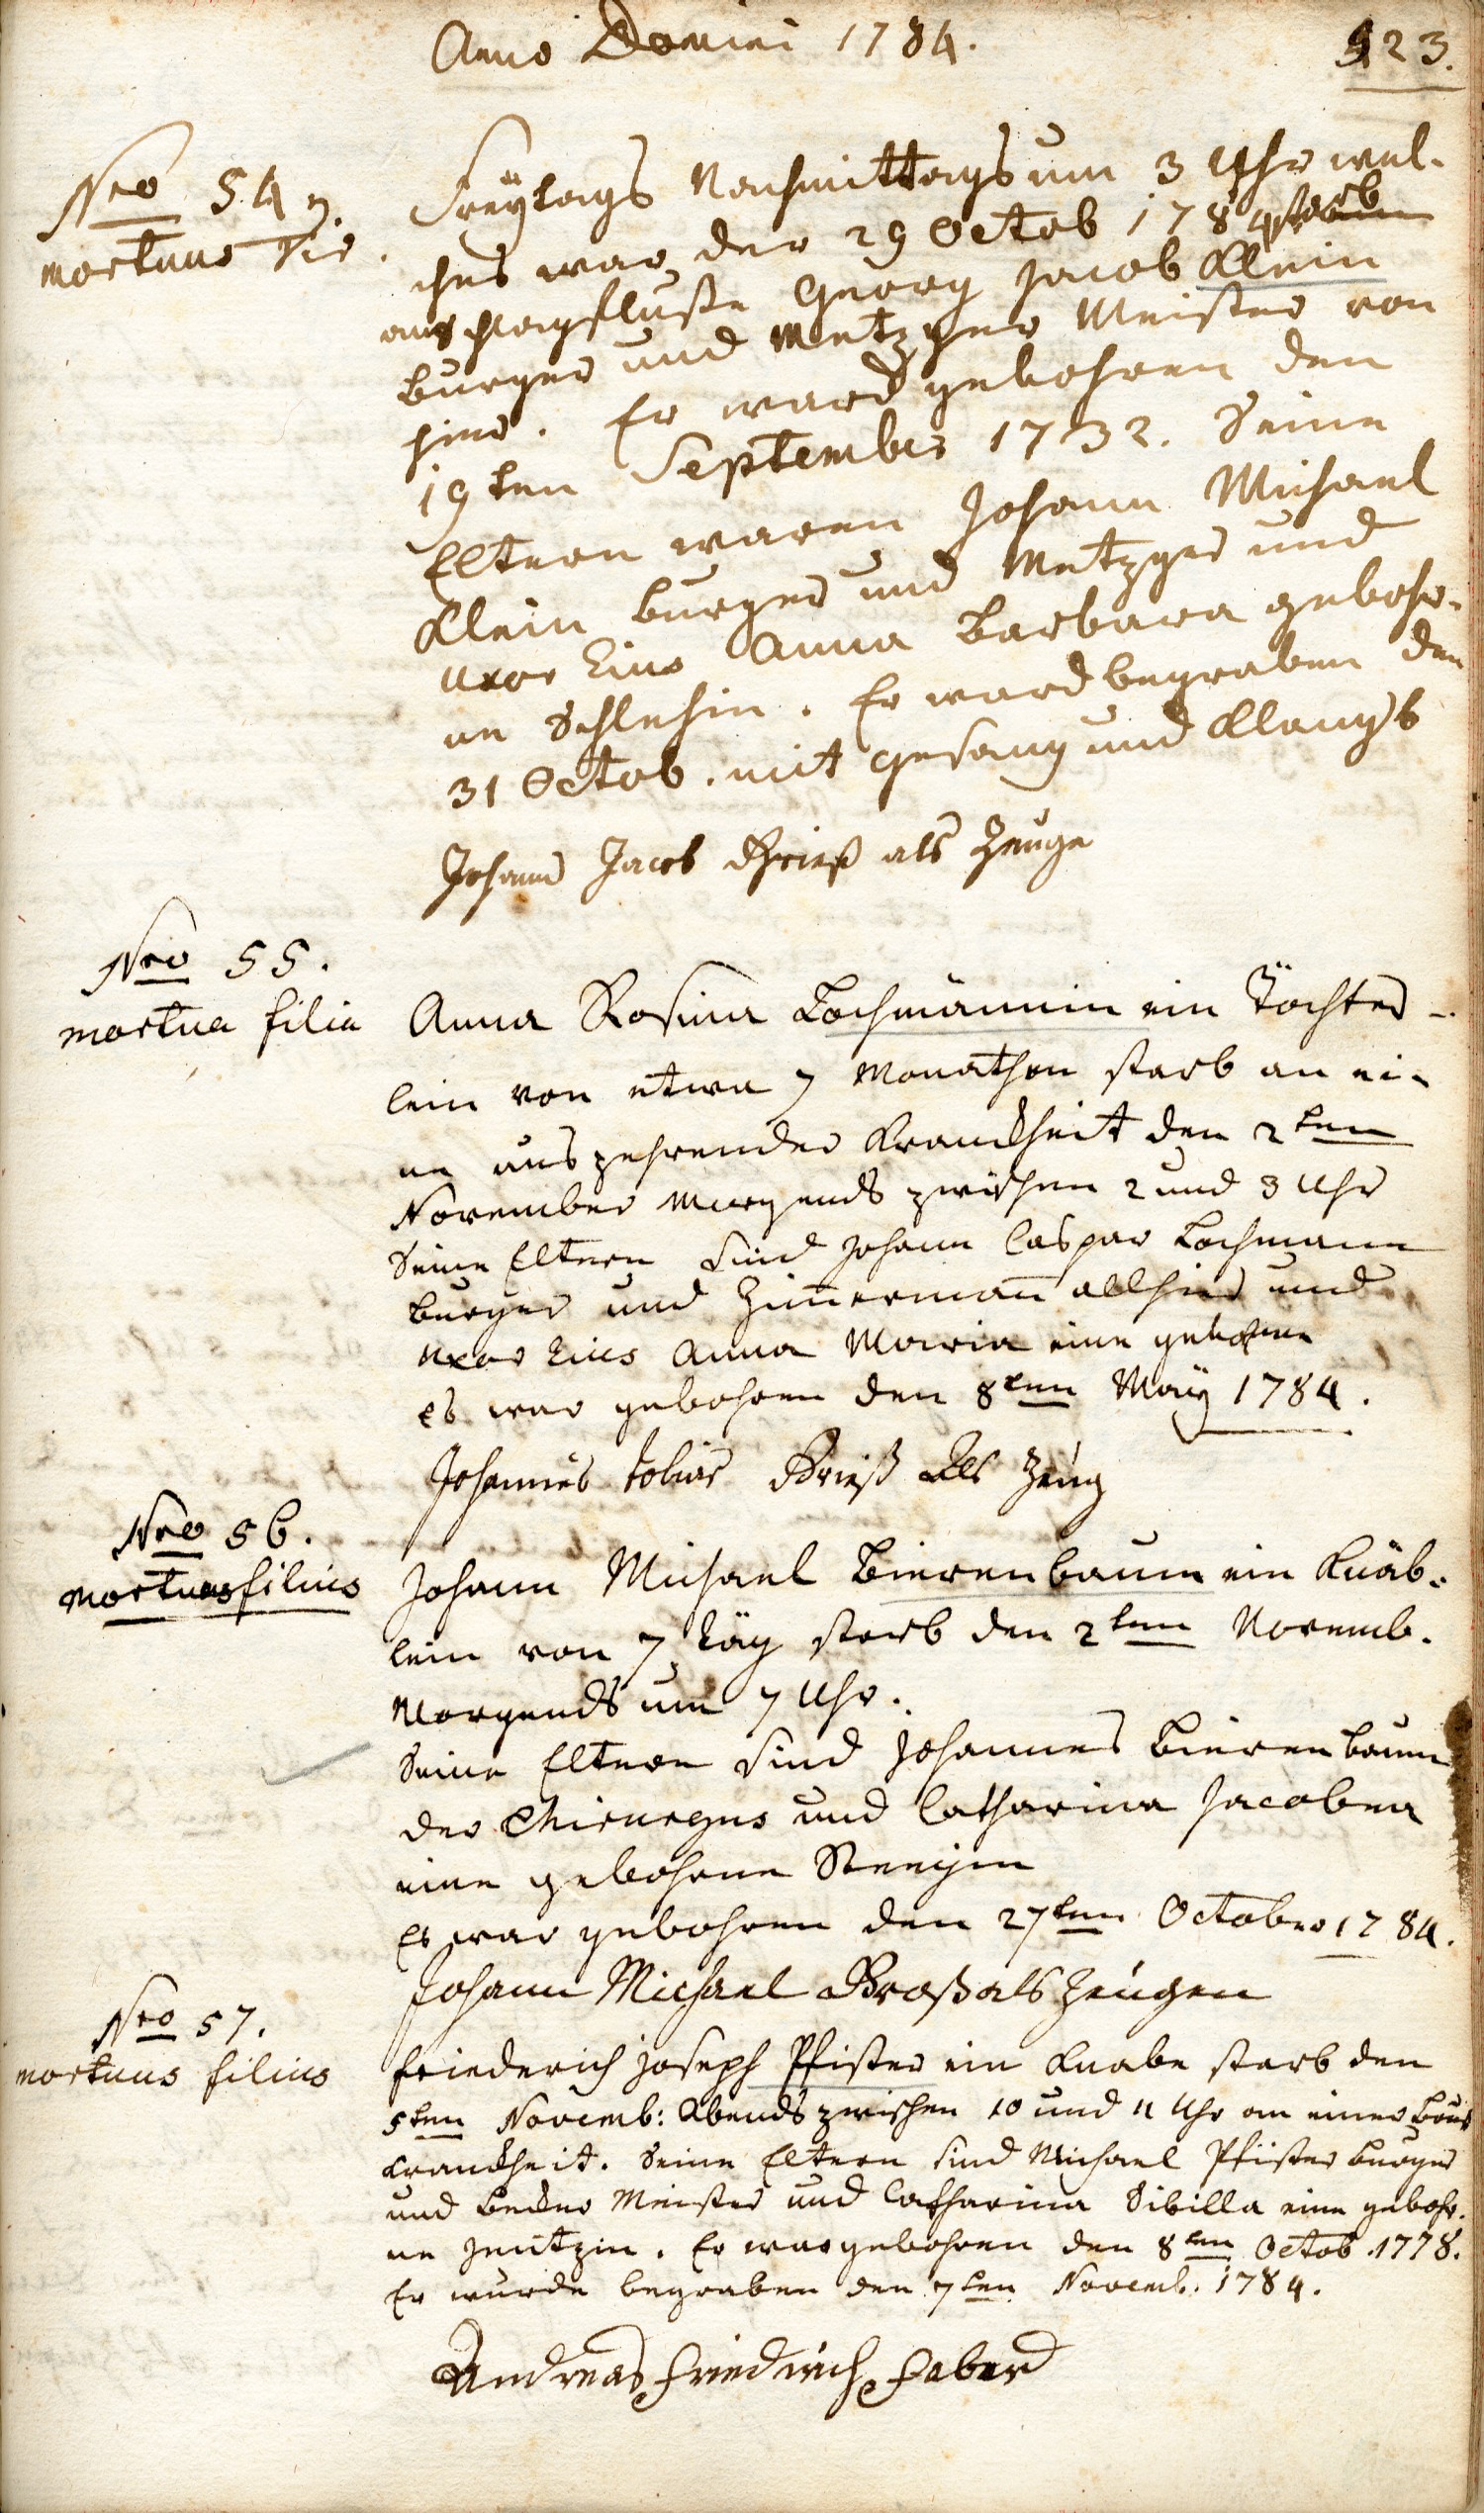 Anno Domini 1784.
123.
Nro 54
mortuus Vir.
Freÿtags Nachmittags um 3 Uhr wel-
ches war der 29 Octob 1784 starb
am Schlagfluße Georg Jacob Klein
burger und Metzger Meister von
hier. Er ward gebohren den
19ten September 1732. Seine
Eltern waren Johann Michael
Klein burger und Metzger und
uxor Eius Anna Barbara gebohr-
ne Schlehin. Er ward begraben den
31 Octob. mit gesang und Klang
Johann Jacob Grieß als Zeuge
Nro 55.
mortua filia
Anna Rosina Lochmännin ein Töchter-
lein von etwa 7 Monathen starb an ei-
ne auszehrender Kranckheit den 2ten
November morgends zwischen 2 und 3 Uhr
Seine Eltern sind Johann Caspar Lochmann
burger und Zim̄ermañ allhier und
uxor Eius Anna Maria eine gebohrne
es war gebohren den 8ten Maÿ 1784.
Johannes tobias Grieß als Zeug
Nro 56.
mortuus filius
Johann Michael Bierenbaum ein Knäb-
lein von 7 täg starb den 2ten Novemb.
Morgends um 7 Uhr.
Seine Eltern sind Johannes Bierenbaum
der Chirurgus und Catharina Jacobea
eine gebohrne
Es war gebohren den 27ten October 1784.
Johann Michael Groß als Zeugen
Nro 57.
mortuus filius
Friederich Joseph Pfister ein Knabe starb den
5ten Novemb: Abends zwischen 10 und 11 Uhr an einer
Kranckheit. Seine Eltern sind Michael Pfister burger
und becker Meister und Catharina Sibilla eine gebohr-
ne Jentzin. Er war gebohren den 8ten Octob. 1778.
Er wurde begraben den 7ten Novemb. 1784.
Andreas Friedrich Faber